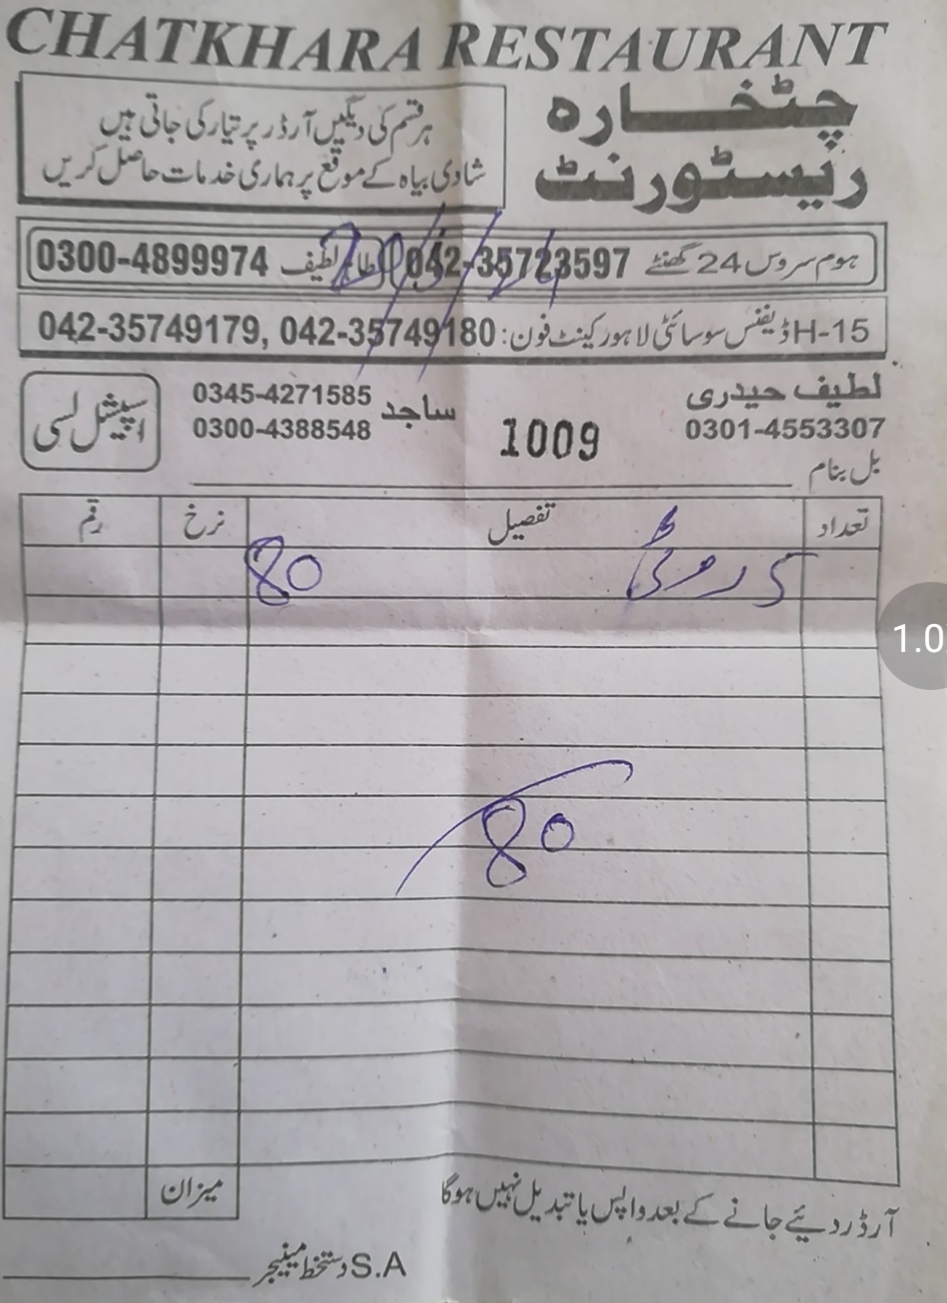 CHATKHARA RESTAURANT
چٹخارہ
ریسٹورنٹ
ہر قسم کی دیگیں آرڈر پر تیار کی جاتی ہیں
شادی بیاہ کے موقع پر ہماری خدمات حاصل کریں
ہوم سروس 24 گھنٹے 042-35723597 طاہر لطیف 0300-4899974
H-15 ڈیفنس سوسائٹی لاہور کینٹ فون: 042-35749179, 042-35749180
لطیف حیدری
0301-4553307
1009
ساجد
0345-4271585
0300-4388548
اسپیشل لسی
بل بنام
تعداد تفصیل نرخ رقم
5 روٹی 80
80
میزان
آرڈر دئیے جانے کے بعد واپس یا تبدیل نہیں ہوگا
S.A دستخط مینیجر
1.0